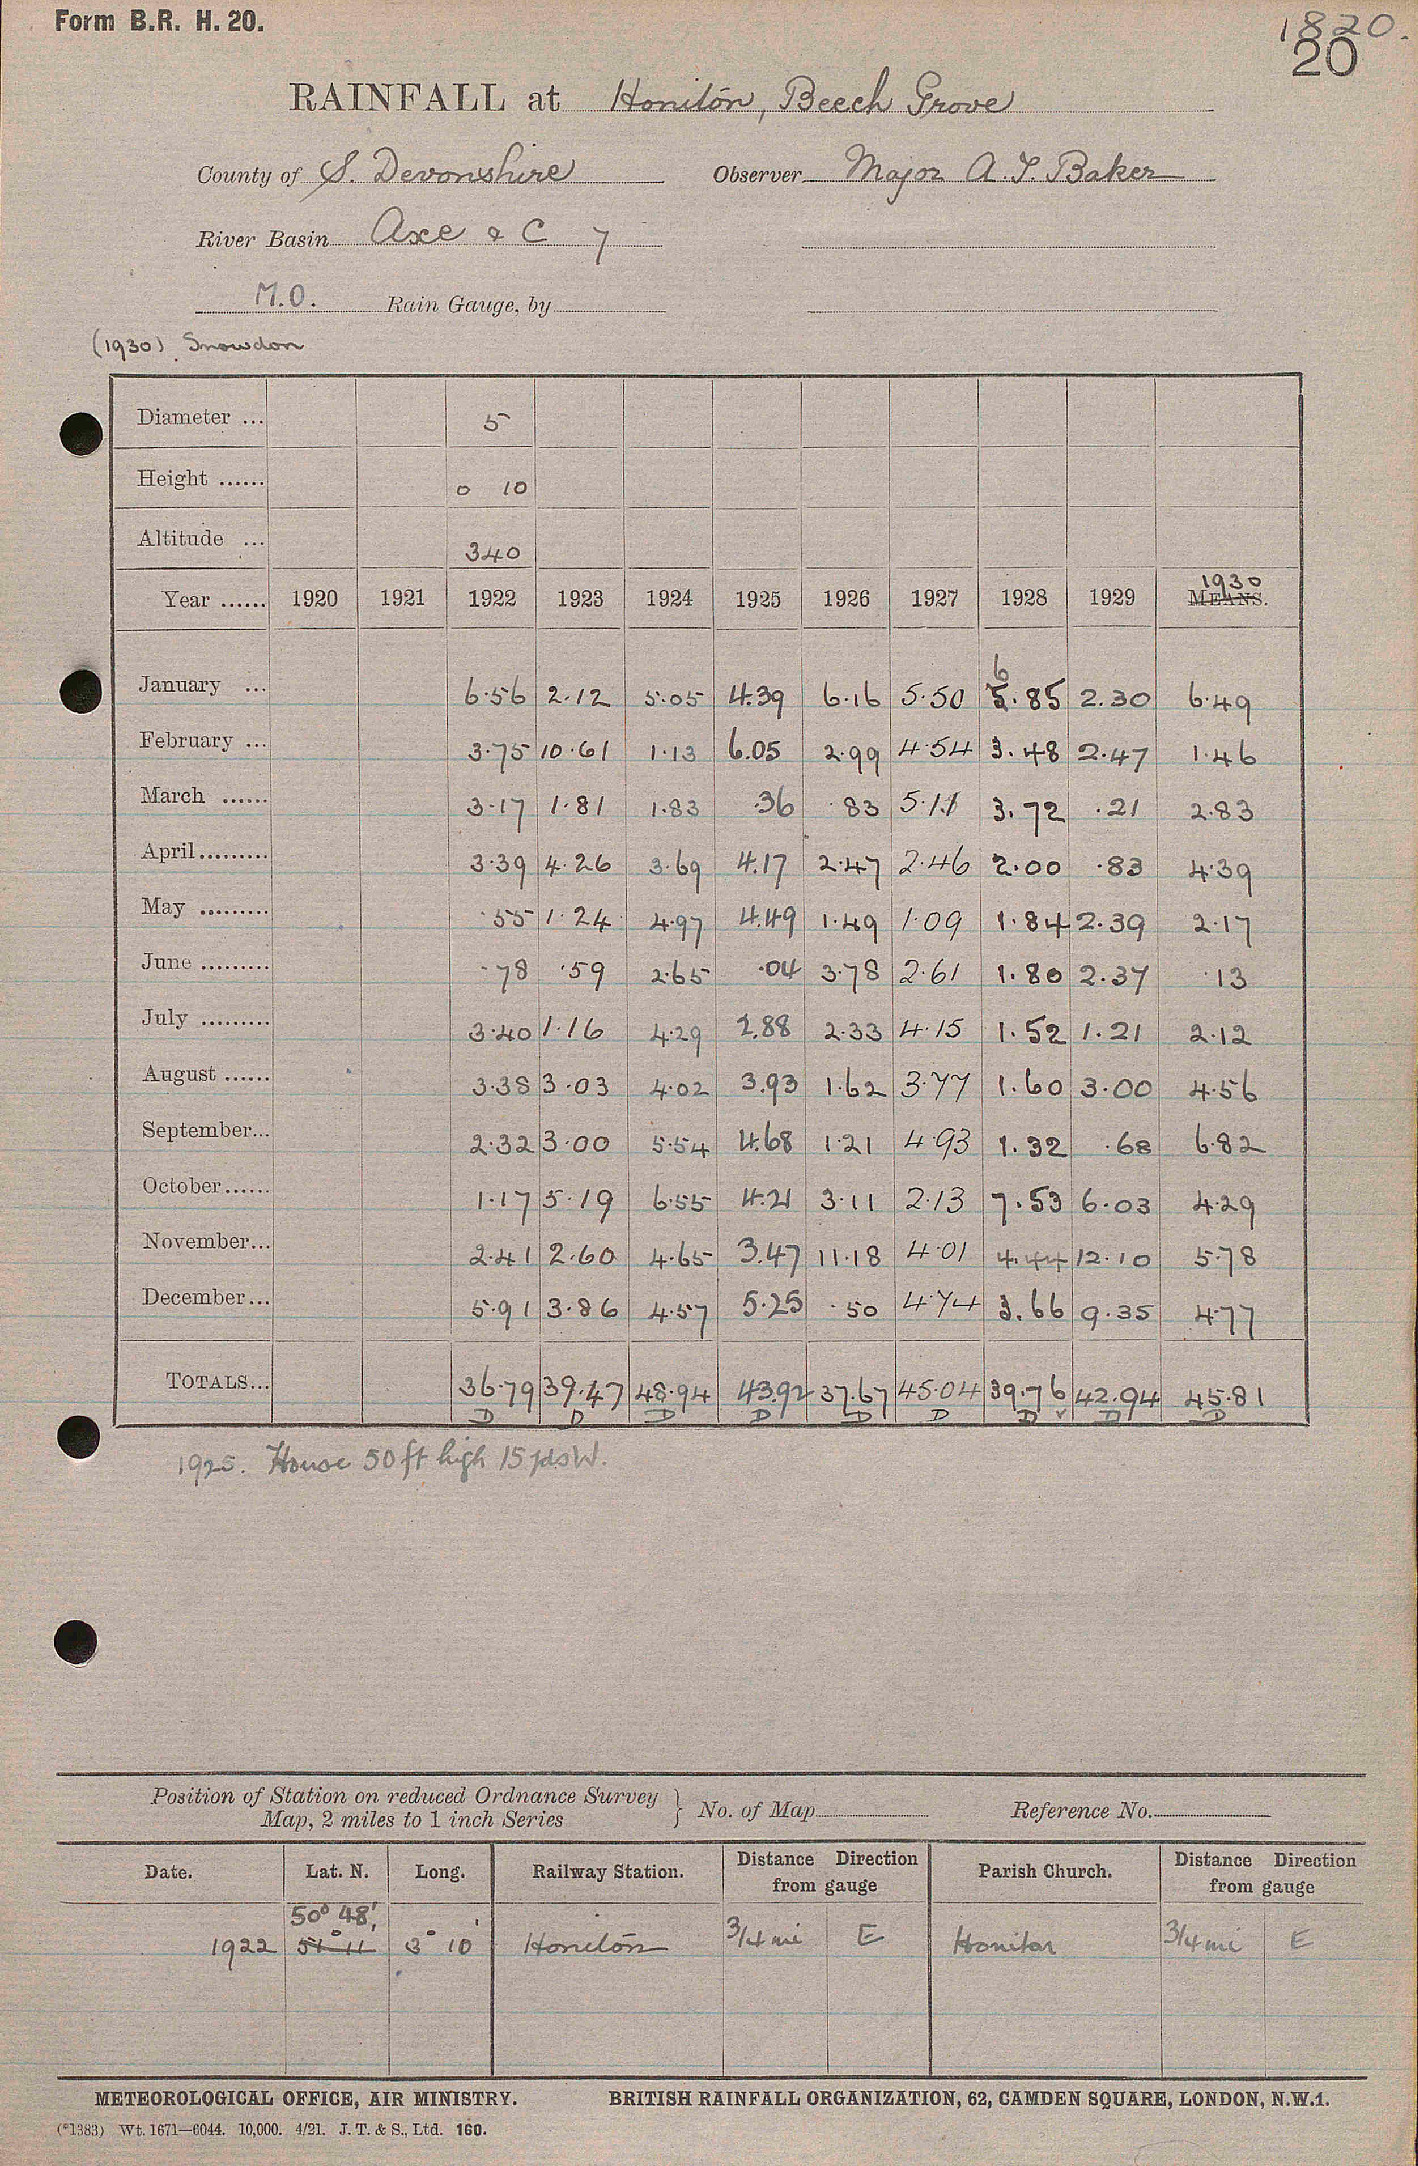 Form B.R. H. 20.
1820.
20
RAINFALL at Honiton, Beech Grove
County of S. Devonshire Observer Major A. T. Baker
River Basin Axe & C 7
M.O. Rain Gauge, by
(1930) Snowdon
Diameter ... 5
Height ...... 0 10
Altitude ... 340
1930
Year ...... 1920 1921 1922 1923 1924 1925 1926 1927 1928 1929 MEANS.
6
January ... 6.56 2.12 5.05 4.39 6.16 5.50 5.85 2.30 6.49
February ... 3.75 10.61 1.13 6.05 2.99 4.54 3.48 2.47 1.46
March ...... 3.17 1.81 1.83 .36 .83 5.11 3.72 .21 2.83
April ......... 3.39 4.26 3.69 4.17 2.47 2.46 2.00 .83 4.39
May ......... .55 1.24 4.97 4.49 1.49 1.09 1.84 2.39 2.17
June ......... .78 .59 2.65 .04 3.78 2.61 1.80 2.37 .13
July ......... 3.40 1.16 4.29 2.88 2.33 4.15 1.52 1.21 2.12
August ...... 3.38 3.03 4.02 3.93 1.62 3.77 1.60 3.00 4.56
September... 2.32 3.00 5.54 4.68 1.21 4.93 1.32 .68 6.82
October...... 1.17 5.19 6.55 4.21 3.11 2.13 7.53 6.03 4.29
November... 2.41 2.60 4.65 3.47 11.18 4.01 4.44 12.10 5.78
December... 5.91 3.86 4.57 5.25 .50 4.74 3.66 9.35 4.77
TOTALS... 36.79 39.47 48.94 43.92 37.67 45.04 39.76 42.94 45.81
D D D D D D D ✓ D D
1925. House 50 ft high 15 yds W.
Position of Station on reduced Ordnance Survey
Map, 2 miles to 1 inch Series } No. of Map Reference No.
Date. Lat. N. Long. Railway Station. Distance Direction from gauge Parish Church. Distance Direction from gauge
50° 48'
1922 51° 11 3° 10' Honiton 3/4 mi E Honiton 3/4 mi E
METEOROLOGICAL OFFICE, AIR MINISTRY. BRITISH RAINFALL ORGANIZATION, 62, CAMDEN SQUARE, LONDON, N.W.1.
(*1383) Wt. 1671—6044. 10,000. 4/21. J. T. & S., Ltd. 160.